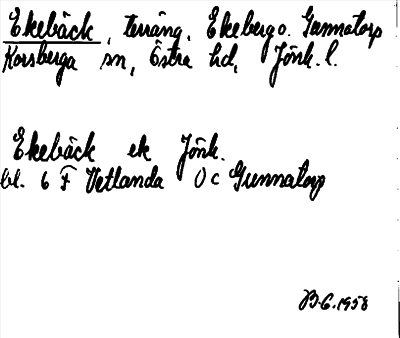 Ekebäck, terräng, Ekeberg o. Gunnatorp
Korsberga sn, Östra hd, Jönk. l.
Ekebäck ek Jönk.
bl. 6 F Vetlanda 0 c Gunnatorp
B.G. 1958